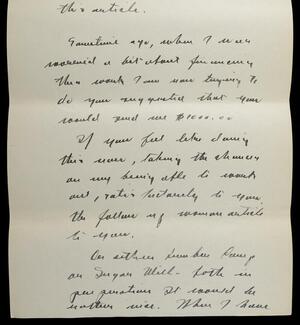 this article.
Sometime ago, when I was
worried a bit about financing
the work I am now trying to
do you suggested that you
would send me $1000.00
If you feel like doing
this now, taking the chances
on my being able to work
out, satisfactorily to you,
the follow up woman article
to you.
On either Lumber Camp
or Sugar Well - both in
preparation it would be
nice. When I have